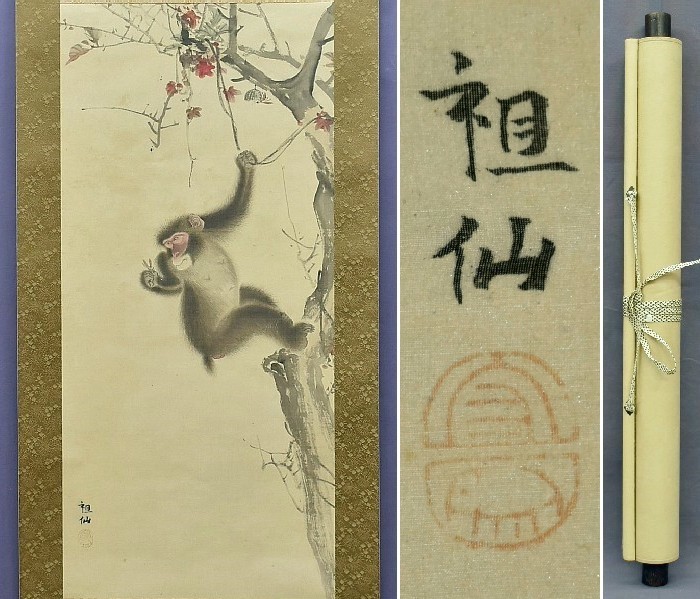 祖仙
祖
仙